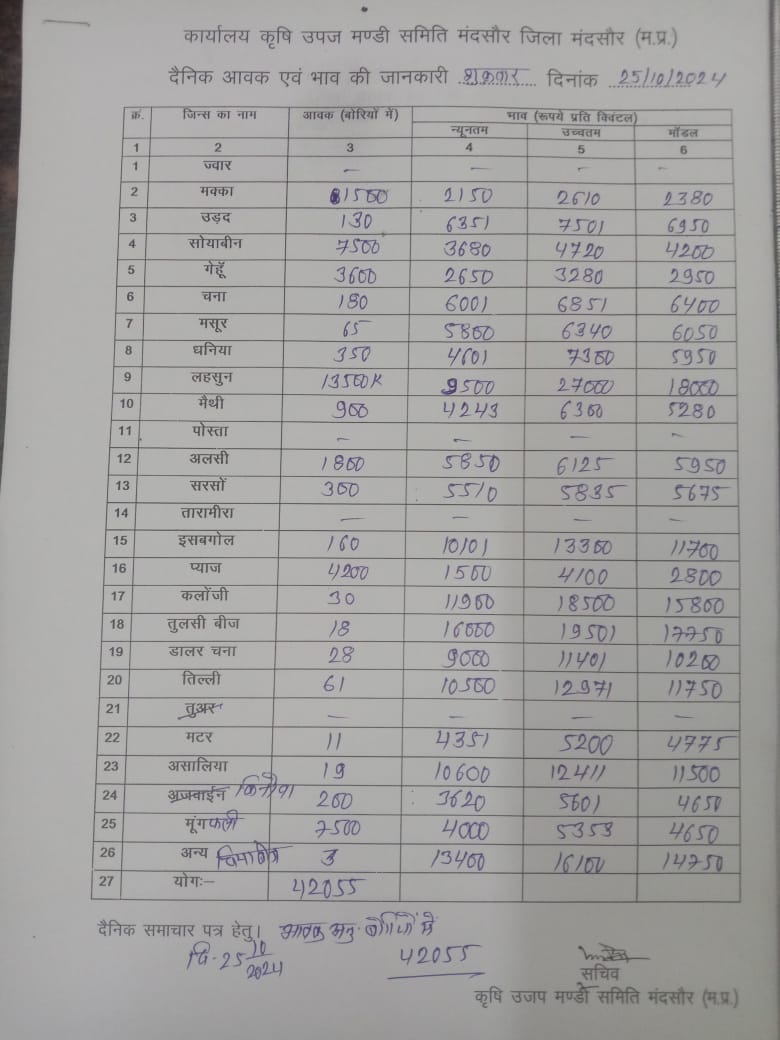 कार्यालय कृषि उपज मण्डी समिति मंदसौर जिला मंदसौर (म.प्र.)
दैनिक आवक एवं भाव की जानकारी शुक्रवार दिनांक 25/10/2024
क्रं. जिन्स का नाम आवक (बोरियों में) भाव (रूपये प्रति क्विंटल)
न्यूनतम उच्चतम मॉडल
1 2 3 4 5 6
1 ज्वार – – – –
2 मक्का 1500 2150 2610 2380
3 उड़द 130 6351 7501 6950
4 सोयाबीन 7500 3680 4720 4200
5 गेहूँ 3600 2650 3280 2950
6 चना 180 6001 6851 6400
7 मसूर 65 5800 6340 6050
8 धनिया 350 4601 7300 5950
9 लहसुन 13500K 9500 27000 18000
10 मैथी 900 4243 6300 5280
11 पोस्ता – – – –
12 अलसी 1800 5850 6125 5950
13 सरसों 300 5510 5835 5675
14 तारामीरा – – – –
15 इसबगोल 160 10101 13300 11700
16 प्याज 4200 1500 4100 2800
17 कलोंजी 30 11900 18500 15800
18 तुलसी बीज 18 16000 19501 17750
19 डालर चना 28 9000 11401 10200
20 तिल्ली 61 10500 12971 11750
21 तुअर – – – –
22 मटर 11 4351 5200 4775
23 असालिया 19 10600 12411 11500
24 अजवाईन 200 3620 5601 4650
25 मूंगफली 7500 4000 5353 4650
26 अन्य चियाबीज 3 13400 16100 14750
27 योगः– 42055
दैनिक समाचार पत्र हेतु। आवक अनु. बोरियों में
दि. 25 10/2024 42055
सचिव
कृषि उजप मण्डी समिति मंदसौर (म.प्र.)